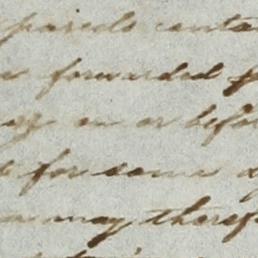 parcels conta
forwarded
on or befor
for some
may theref